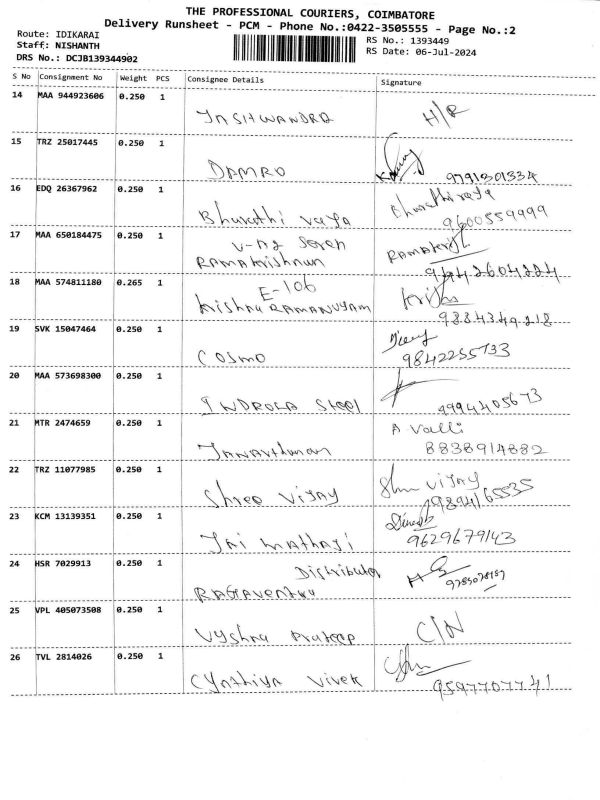 THE PROFESSIONAL COURIERS, COIMBATORE
Delivery Runsheet - PCM - Phone No.:0422-3505555 - Page No.:2
Route: IDIKARAI
RS No.: 1393449
Staff: NISHANTH
RS Date: 06-Jul-2024
DRS No.: DCJB139344902
S No Consignment No Weight PCS Consignee Details Signature
14 MAA 944923606 0.250 1
JASHWANDRA H/R
15 TRZ 25017445 0.250 1
DAMRO 9791301334
16 EDQ 26367962 0.250 1
Bharathi raja Bharathiraja
9600559999
17 MAA 650184475 0.250 1
V-A2 Seren
RAMAKrishnan
18 MAA 574811180 0.265 1
E-106
Krishna RAMANUJAM
9884349218
19 SVK 15047464 0.250 1
COSMO 9842255733
20 MAA 573698300 0.250 1
INDROLA Steel 9994405673
21 MTR 2474659 0.250 1
A Valli
JANArthanan 8838914882
22 TRZ 11077985 0.250 1
Shree Vijay
Shree VIJAY 9894165535
23 KCM 13139351 0.250 1
Dinesh
JAI MAthAJi 9629679143
24 HSR 7029913 0.250 1
Distributor
RAGAVENtra
25 VPL 405073508 0.250 1
Vyshna Prateep C/N
26 TVL 2814026 0.250 1
CYnthiya Vivek 9597707741